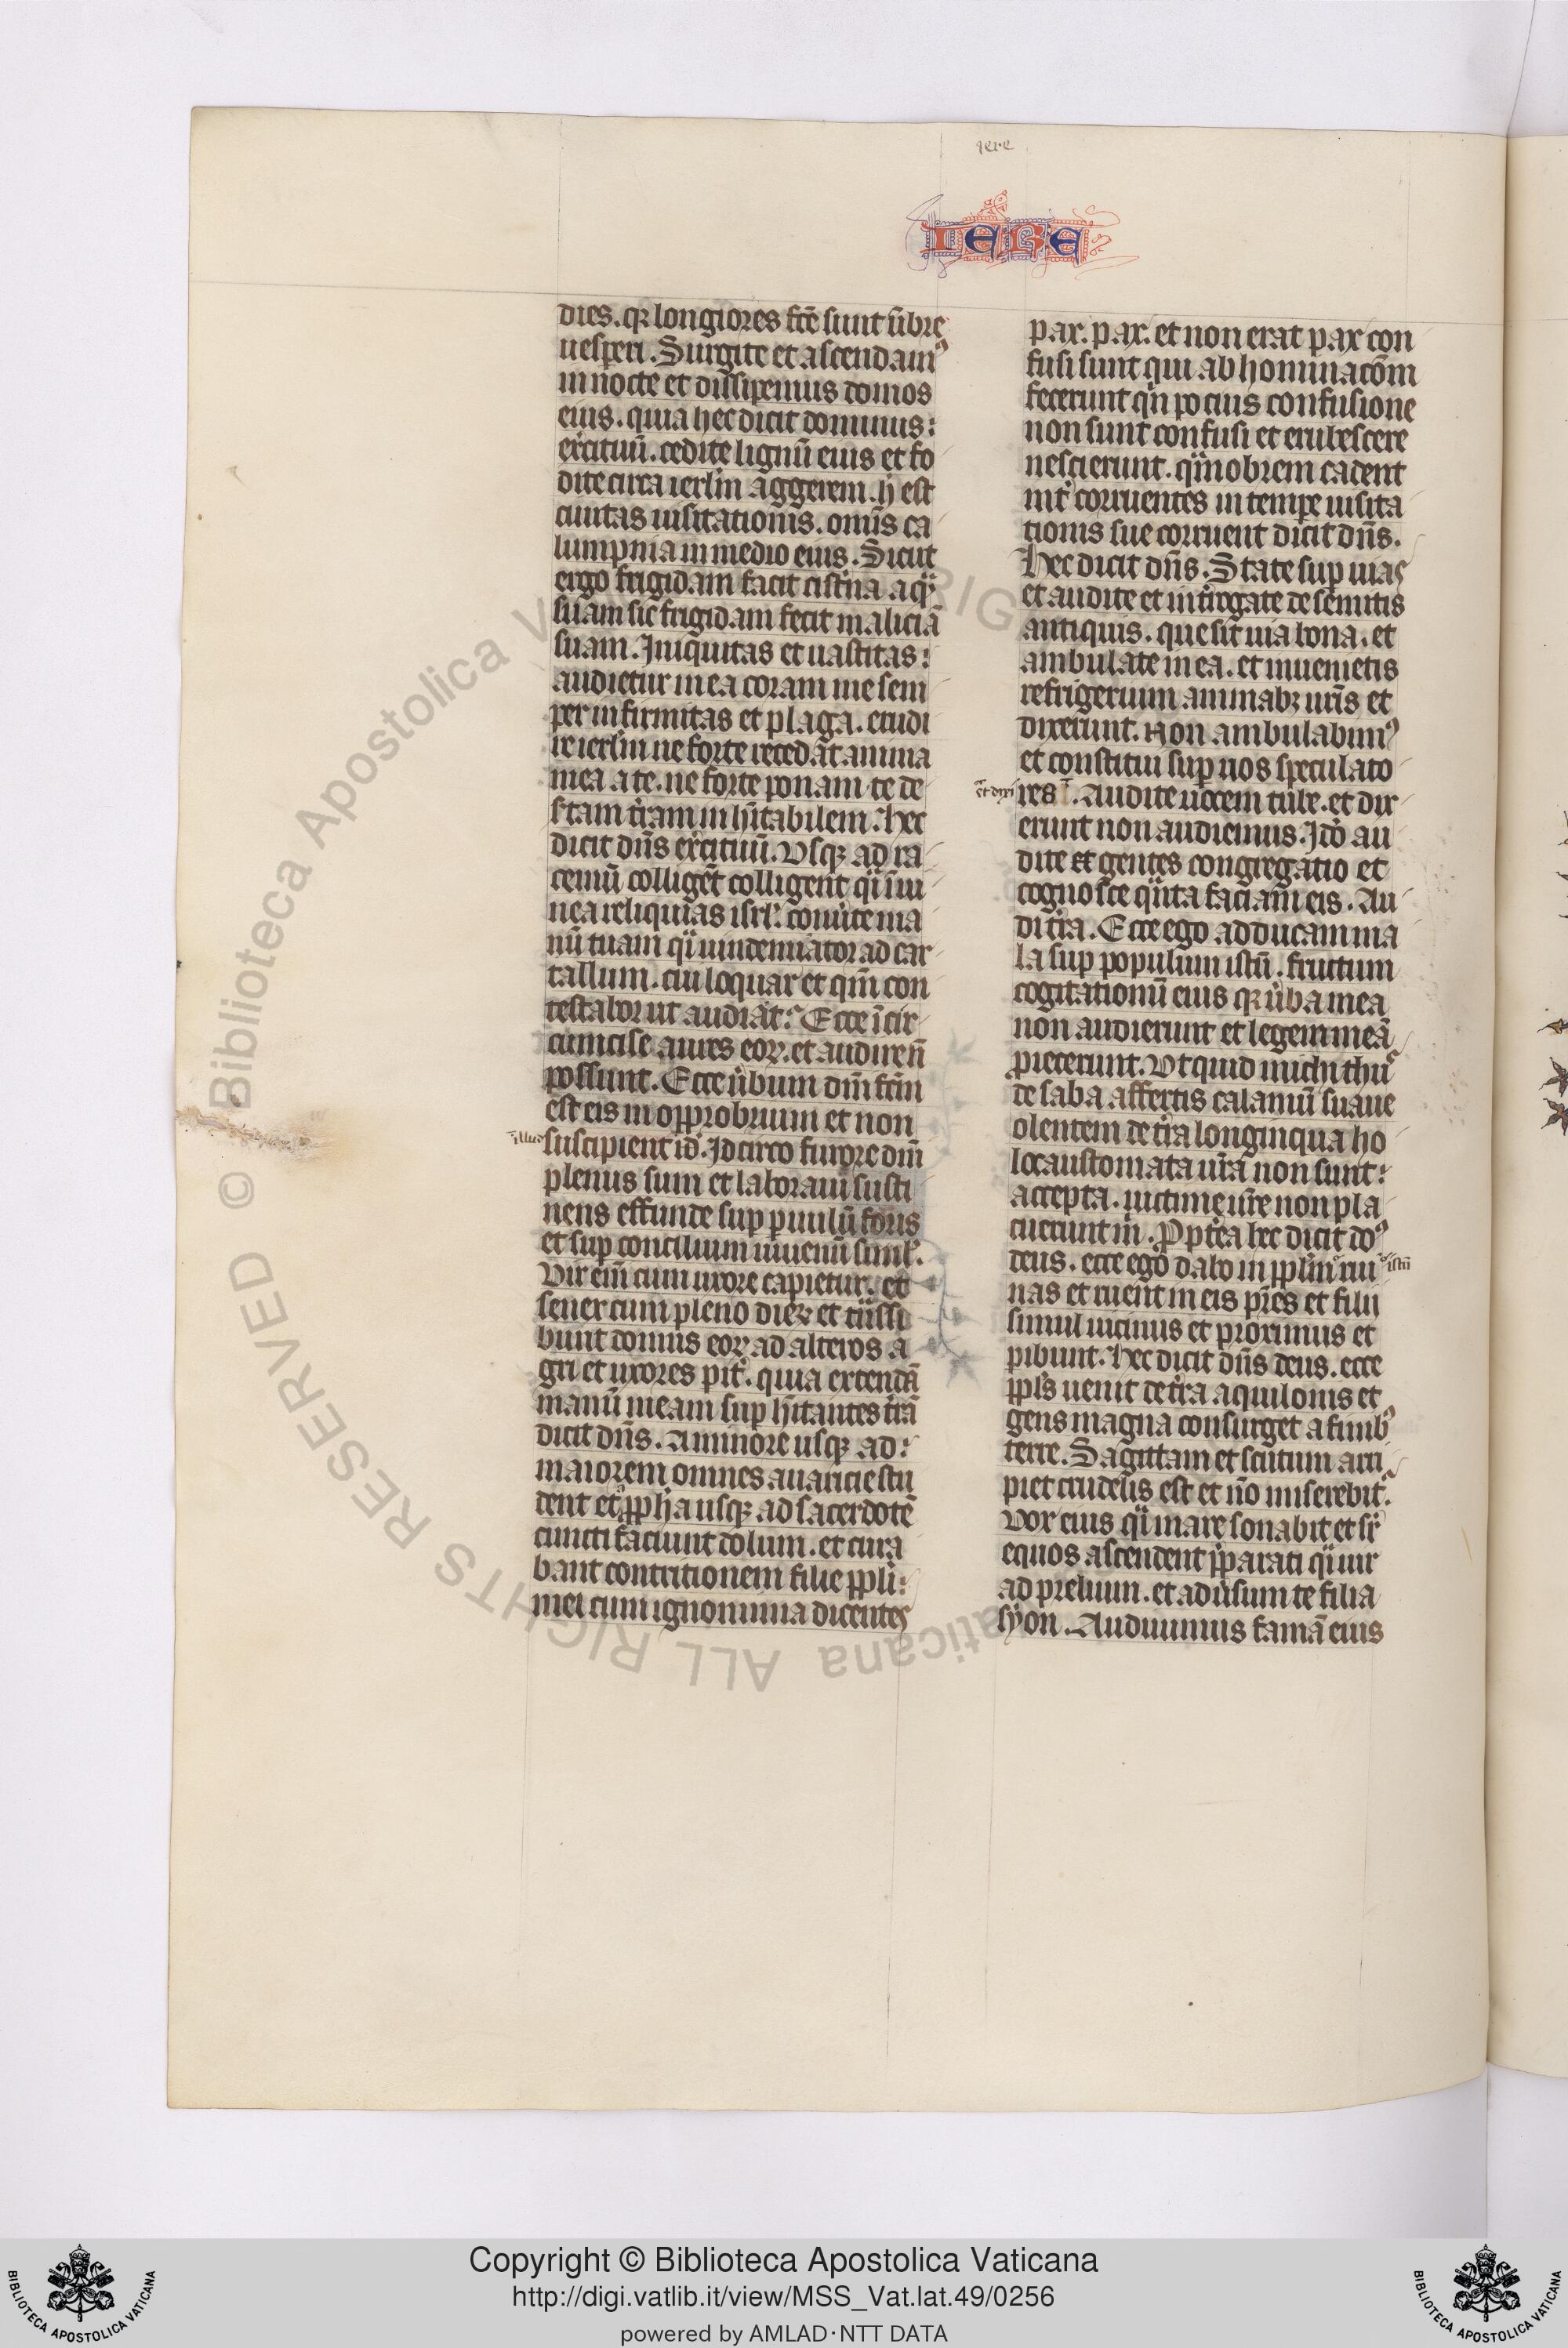 iere
IERE
dies. qr longiores fc̄e sunt ūbre
uesperi. Surgite et ascendamꝰ
in nocte et dissipemus domos
eius. quia hec dicit dominus:
exͨituū. cedite lignū eius et fo
dite circa ierl̄m aggerem. h̄ est
ciuitas uisitationis. omīs ca
lumpnia in medio eius. Sicut
ergo frigidam facit cistͥna aqͣ
suam sic frigidam fecit maliciā
suam. Iniquitas et uastitas:
audietur in ea coram me sem
per infirmitas et plaga. erudi
re ierl̄m ne forte recedat anima
mea a te. ne forte ponam te de
sͬtam tͬram inh̄itabilem. Hec
dicit dn̄s exͨituū. Vsqꝫ ad ra
cemū colligēt colligent qͥ in ui
nea reliquias isrl̓. conuͬte ma
nū tuam qͥ uindemiator ad car
tallum. cui loquar et qm̄ con
testabor ut audiāt. Ecce īcir
cumcise aures eoꝝ. et audire n̄
possunt. Ecce ûbum dn̄i fc̄m
est eis in opprobrium et non
illud suscipient id. Idcirco furore dn̄i
plenus sum et laboraui susti
nens effunde suꝑ ꝑuulū foris
et suꝑ concilium iuuenū simĺ.
Vir ei̅m cum uxore capietur. et
senex cum pleno dieꝝ et tͣnssi
bunt domus eoꝝ ad alteros a
gri et uxores pit̓. quia extendā
manū meam suꝑ h̄itantes tͬrā
dicit dn̄s. A minore usqꝫ ad:
maiorem omnes auaricie stu
dent et a ꝓph̄a usqꝫ ad sacerdotē
cuncti faciunt dolum. et cura
bant contritionem filie ppl̓i:
mei cum ignominia dicentes
pax. pax. et non erat pax con
fusi sunt qui abhominacōm
fecerunt qͥn pocius confusione
non sunt confusi et erubescere
nescierunt. qͣmobrem cadent
int̓ corruentes in tempe uisita
tionis sue corruent dicit dn̄s.
Hec dicit dn̄s. State suꝑ uias
et audite et intͬrogate de semitis
antiquis. que sit uia bona. et
ambulate in ea. et inuenietis
refrigerium animabꝫ ur̄is et
dixerunt. Non ambulabimꝰ
et constitui suꝑ uos speculato
et dixi res. Audite uocem tube. et dix
erunt non audiemus. Idō au
dite gentes congregatio et
cognosce qͣnta faciam eis. Au
di tͬra. Ecce ego adducam ma
la suꝑ populum istū. fructum
cogitationū eius qr ûba mea
non audierunt et legem meā
ꝓiecerunt. Vt quid michi thus
de saba affertis calamū suaue
olentem de tͬra longinqua ho
locaustomata ur̄a non sunt:
accepta. uictime ur̄e non pla
cuerunt m̄. Ppt̓ea hec dicit doꝰ
deus. ecce ego dabo in ppl̓m rui istū
nas et ruent in eis pr̄es et filii
simul uicinus et proximus et
pibunt. Hec dicit dn̄s deus. ecce
ppl̓s uenit de tͬra aquilonis et
gens magna consurget a finibꝰ
terre. Sagittam et scutum arri
piet crudelis est et n̄o miserebit̓.
Vox eius qͥ mare sonabit et sr̄
equos ascendent p̄parati qͥ uir
ad prelium. et adûsum te filia
syon. Audiuimus famā eius
© Biblioteca Apostolica Vaticana ALL RIGHTS RESERVED
Copyright © Biblioteca Apostolica Vaticana
http://digi.vatlib.it/view/MSS_Vat.lat.49/0256
powered by AMLAD·NTT DATA
BIBLIOTECA APOSTOLICA VATICANA
BIBLIOTECA APOSTOLICA VATICANA